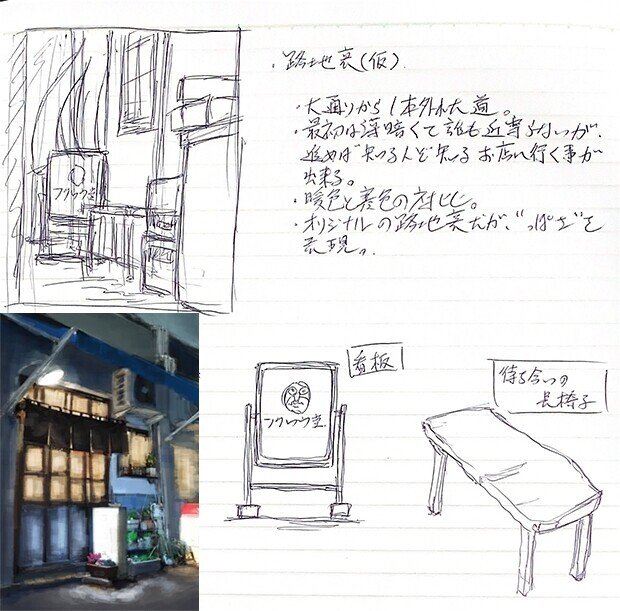 ・路地裏(仮)
・大通りから1本外れた道。
最初は薄暗くて誰も近寄らないが、
進めば知る人ぞ知るお店に行く事が
出来る。
・暖色と寒色の対比。
・オリジナルの路地裏だが、"っぽさ"を
表現。
フクロウ堂
看板
フクロウ堂
待ち合いの
長椅子